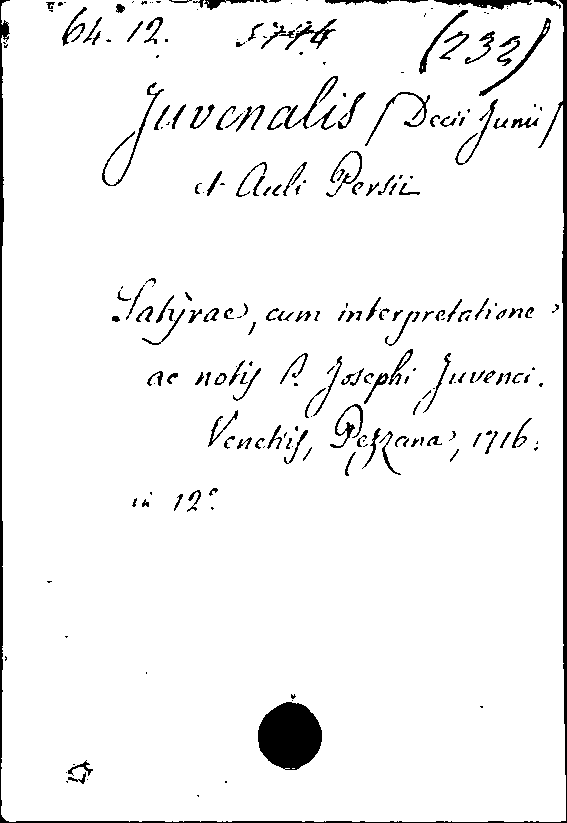 64.12. 5774 (232)
Juvenalis (Decii Junii)
et Auli Persii
Satÿrae, cum interpretatione
ac notis P. Josephi Juvenci.
Venetiis, Pezzana, 1716.
in 12°.